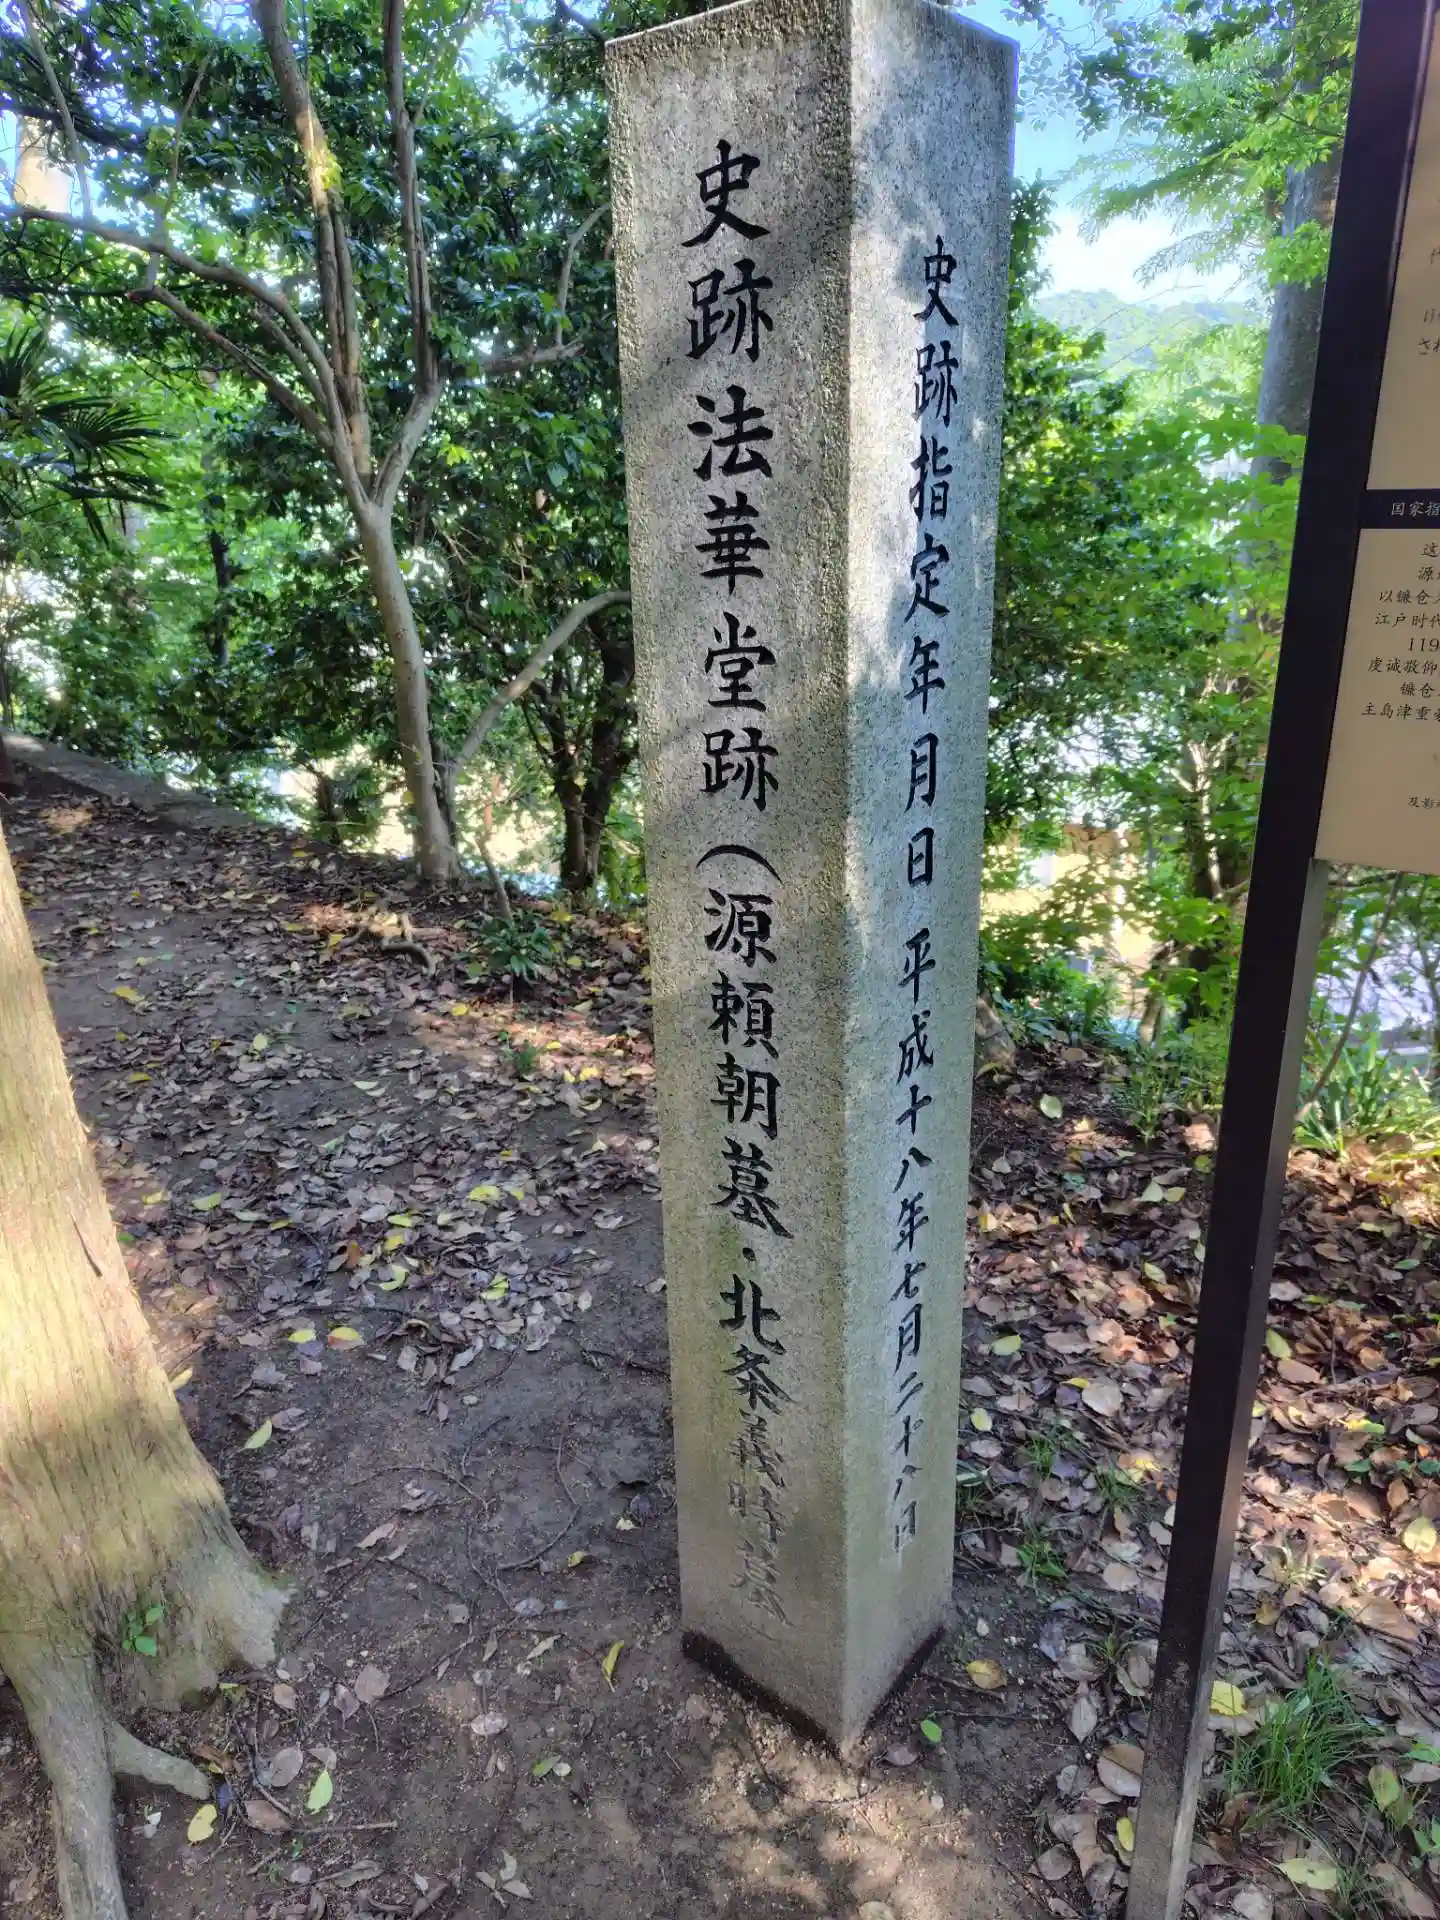 史跡法華堂跡（源頼朝墓・北条義時墓）
史跡指定年月日平成十八年七月二十八日
国家指
这
源
以镰仓
江户时代
119
虔诚敬仰
镰仓
主岛津重豪
及影